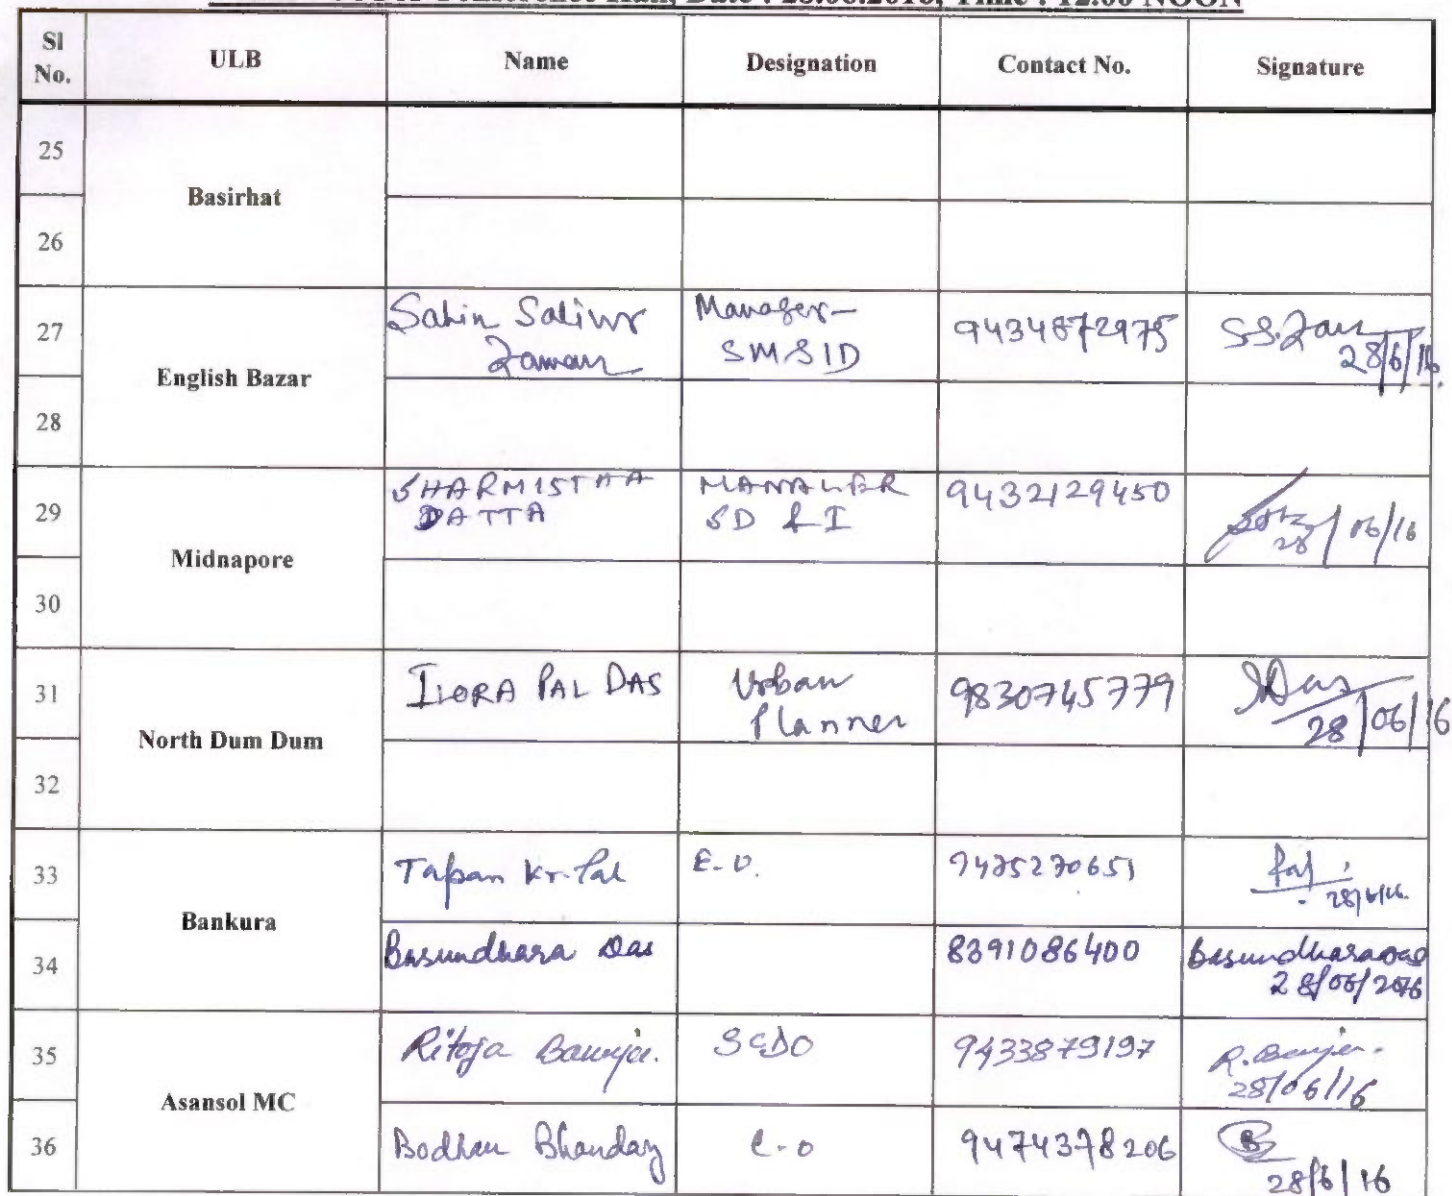 Conference Hall, Date : 28.06.2016, Time : 12.00 NOON
Sl No. ULB Name Designation Contact No. Signature
25
Basirhat
26
27 Sahin Saliur Zaman Manager- SMSID 9434872975 S.S.Zam 28/6/16.
English Bazar
28
29 SHARMISTHA DATTA MANAGER SD & I 9432129450 28/06/16
Midnapore
30
31 ILORA PAL DAS Urban Planner 9830745779 IDas 28/06/16
North Dum Dum
32
33 Tapan Kr. Pal E.O. 9475270651 Pal 28/6/16.
Bankura
34 Basundhara Das 8391086400 Basundhara Das 28/06/2016
35 Ritoja Banerjee. SCDO 9433879197 R. Banerjee. 28/06/16
Asansol MC
36 Bodhan Bhandary C.O 9474378206 B 28/6/16